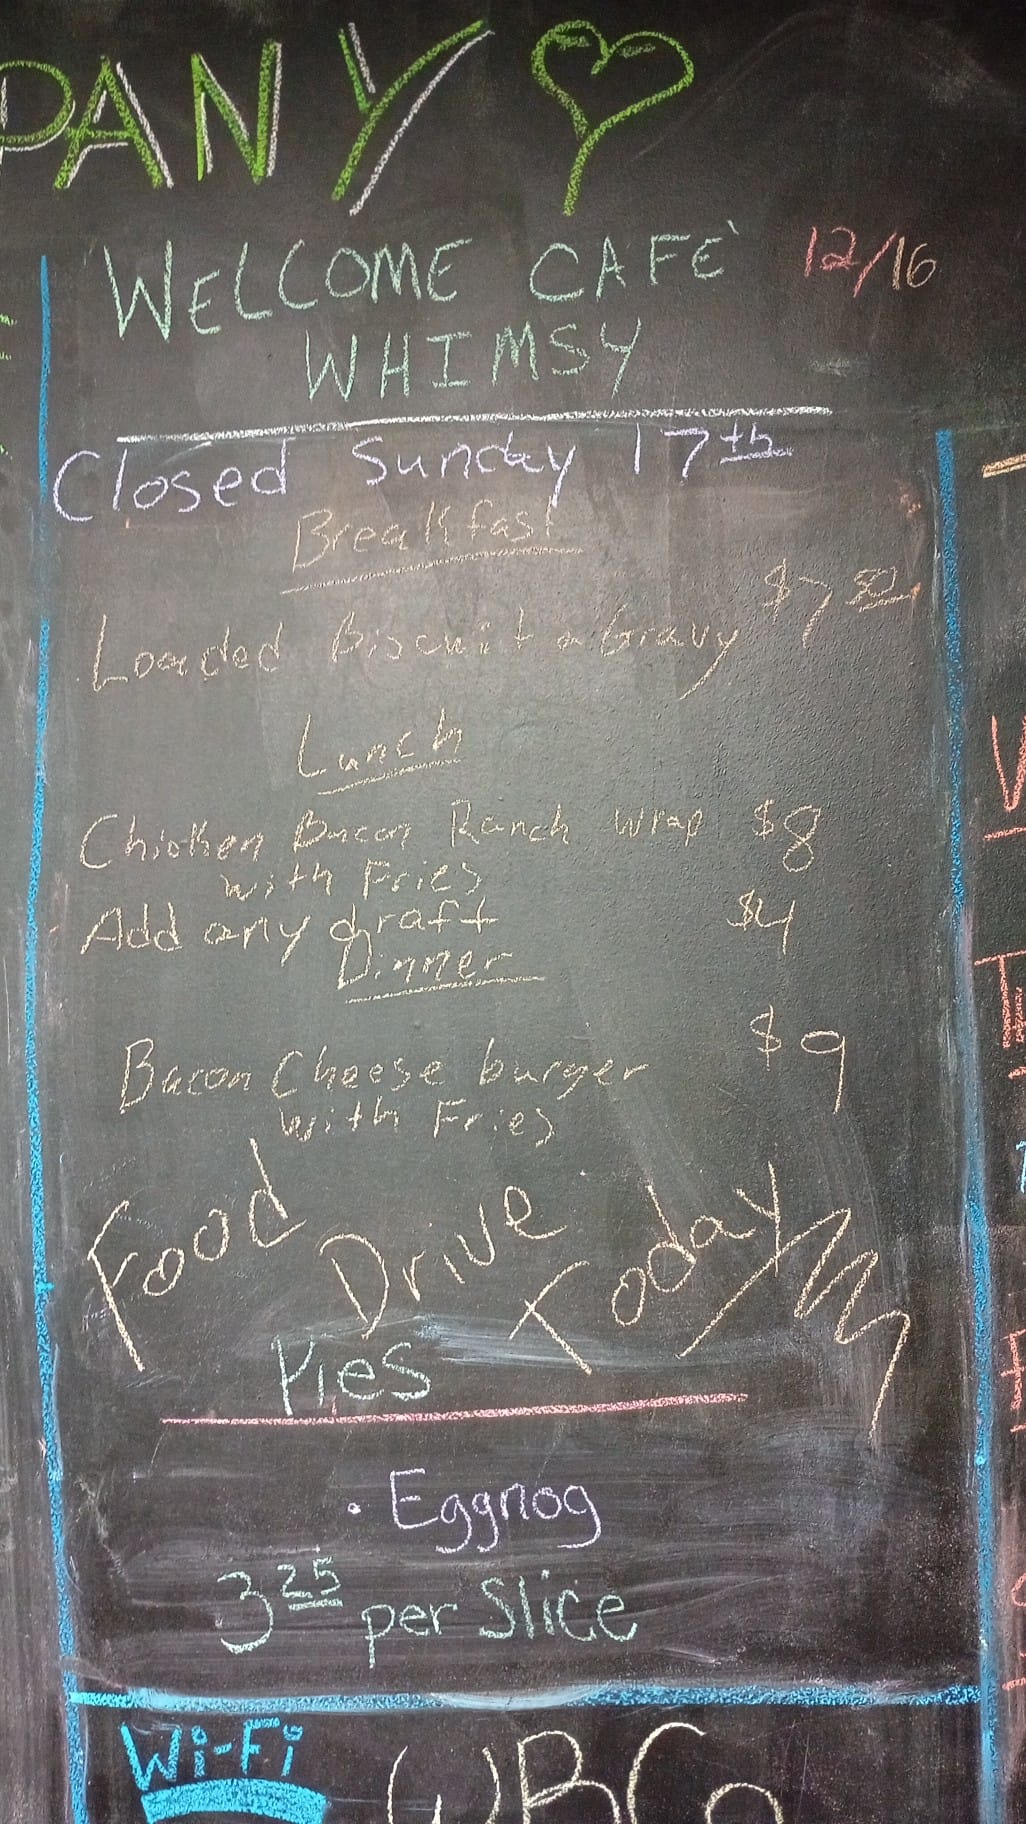 PANY
WELCOME CAFE` 12/16
WHIMSY
Closed Sunday 17th
Breakfast
Loaded Biscuit & Gravy $7 50
Lunch
Chicken Bacon Ranch Wrap $8
with Fries
Add any draft $4
Dinner
Bacon Cheese burger $9
with Fries
Food Drive Today
Pies
· Eggnog
3 25 per Slice
Wi-Fi